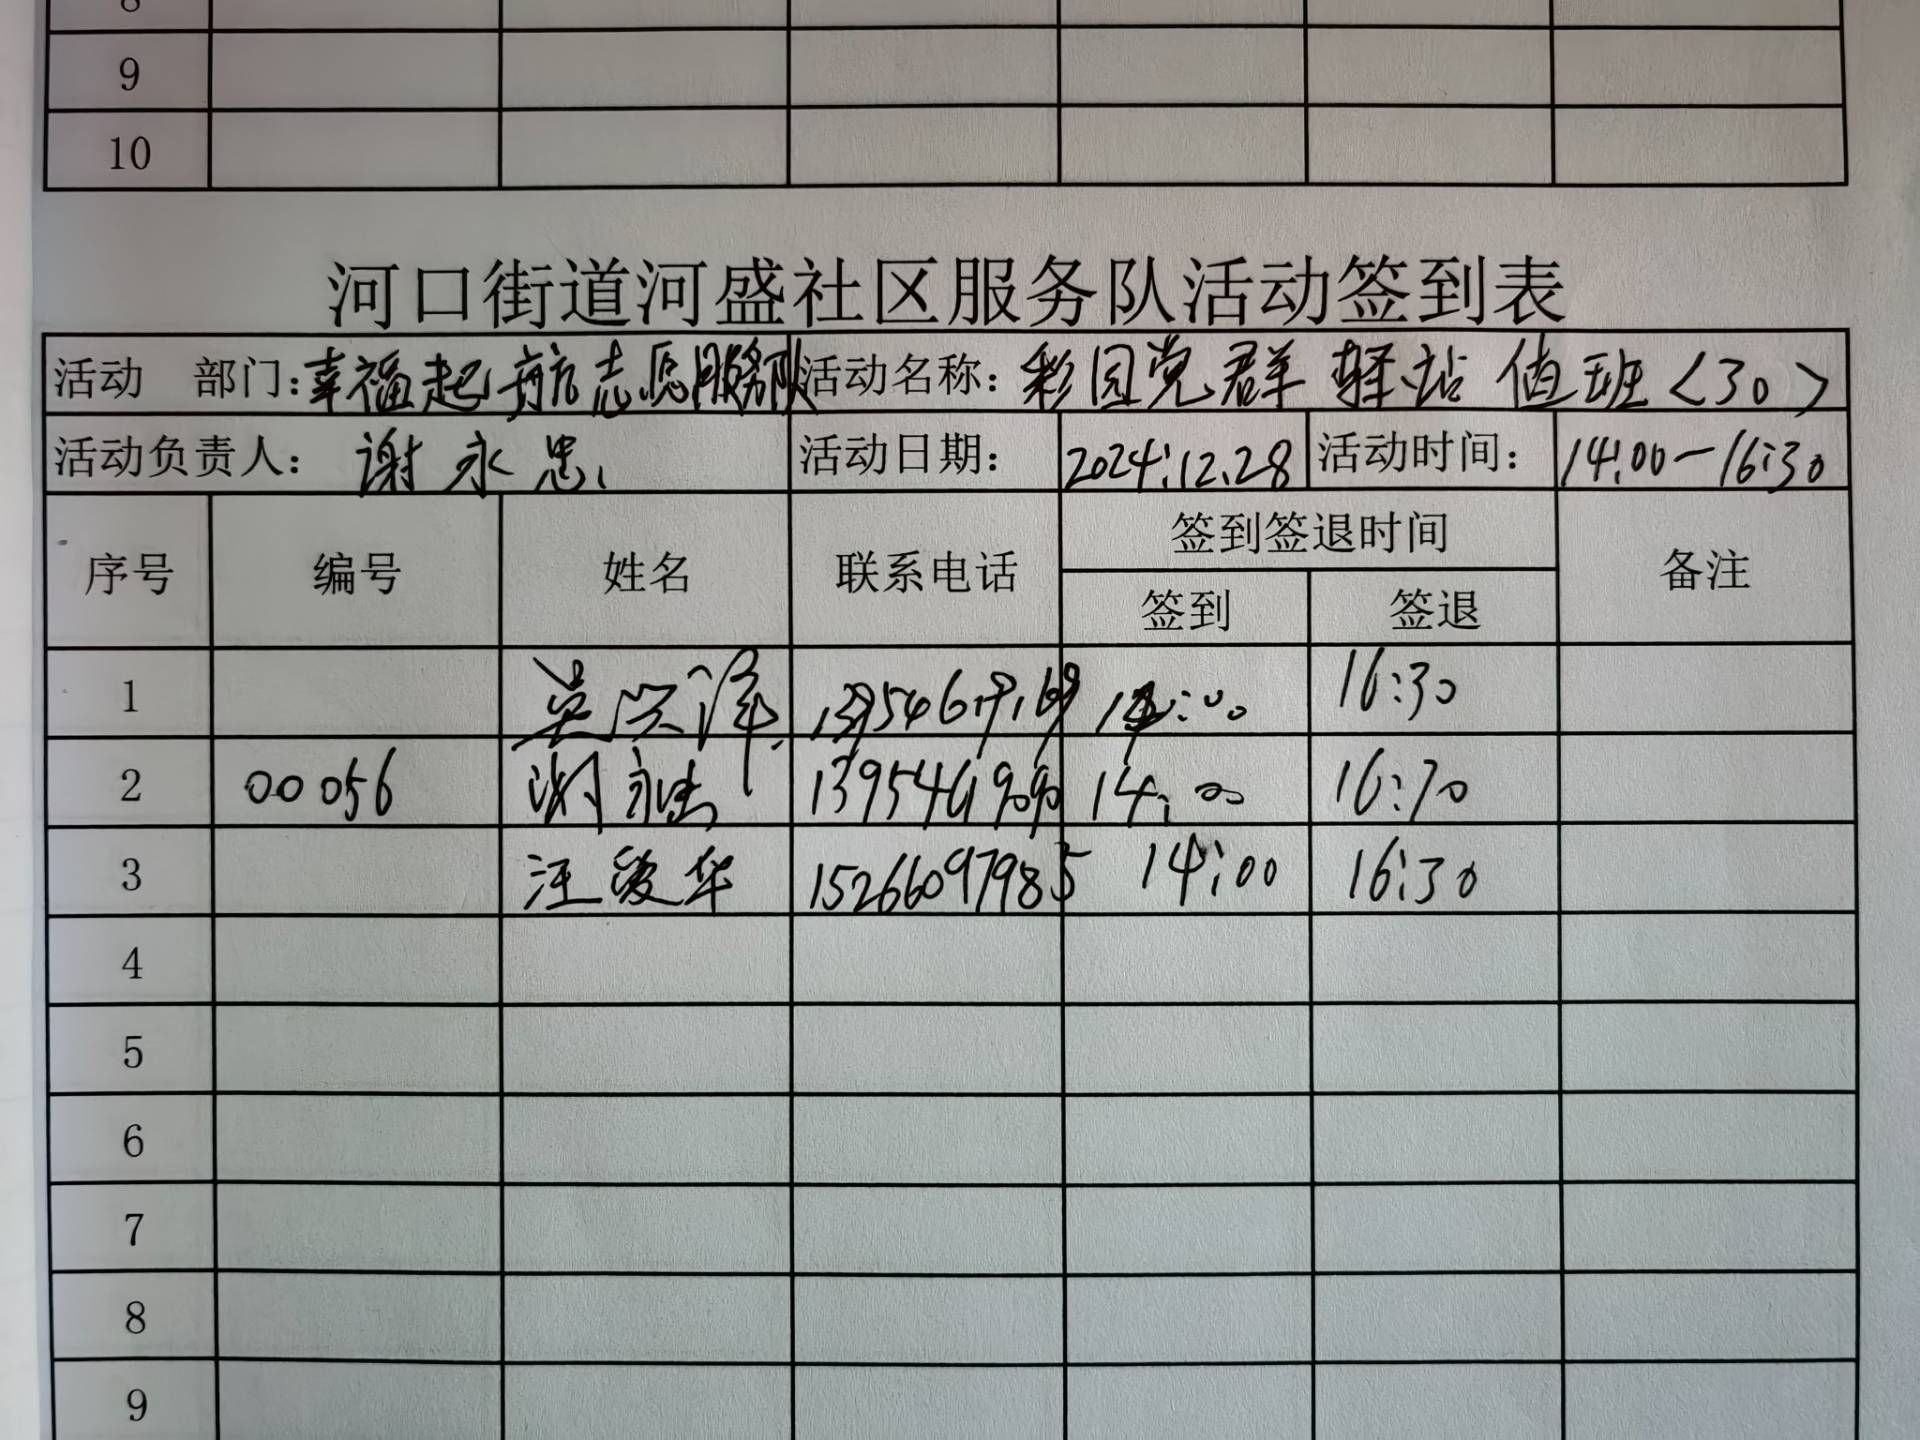 8
9
10
河口街道河盛社区服务队活动签到表
活动 部门：幸福起航志愿服务队 活动名称：彩园党群驿站值班<30>
活动负责人：谢永忠 活动日期：2024.12.28 活动时间：14:00—16:30
序号 编号 姓名 联系电话 签到签退时间 备注
签到 签退
1 14:00 16:30
2 00056 14:00 16:30
3 汪爱华 15266097985 14:00 16:30
4
5
6
7
8
9